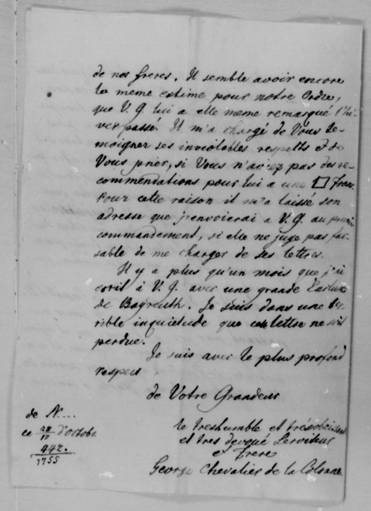 de nos freres. Il semble avoir encore
la meme estime pour notre Ordre,
que V. G lui a elle meme remarqué l'hi-
ver passé. Il m'a chargé de Vous te-
moigner ses inviolables respects et de
Vous prier, si Vous n'aviez pas des re-
commendations pour lui a une □
Pour cette raison il m'a laissé son
adresse que j'envoierai a V. G. au
commandement, si elle ne juge pas
sable de me charger de ses lettres.
Il y a plus qu'un mois que j'ai
ecrit à V. G. avec une grande
de Bayreuth. Je suis dans une
rible inquietude que lettre ne soit
perdue.
Je suis avec le plus profond
respect
de Votre Grandeur
de N....
ce d'octobr
442.
1755
le treshumble et
et tres devoué Serviteur
et Frere
George Chevalier de la Colonne